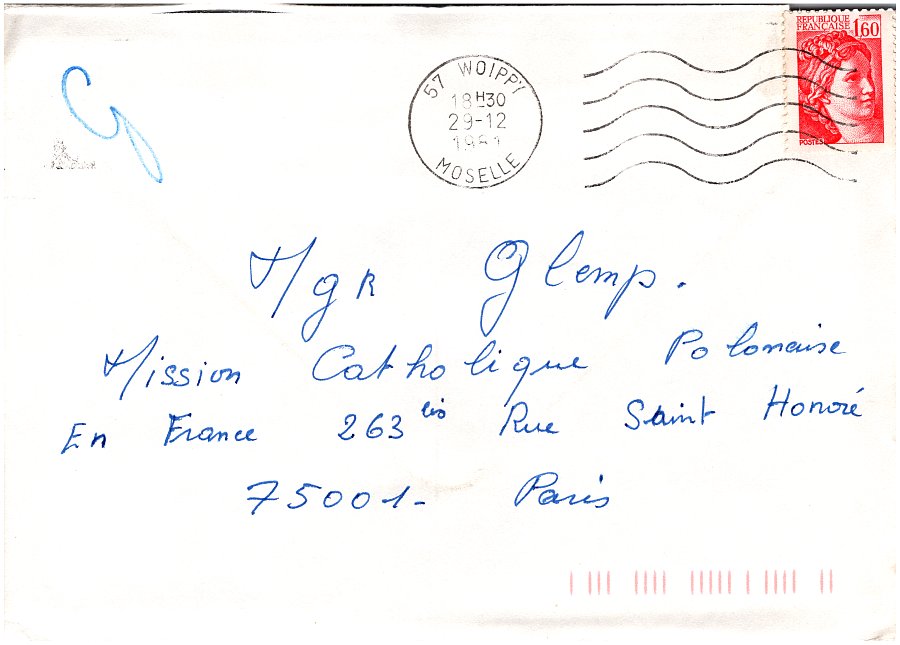 RÉPUBLIQUE
FRANÇAISE 1,60
POSTES
57 WOIPPY
18H30
29-12
1981
MOSELLE
Mgr Glemp.
Mission Catholique Polonaise
En France 263 bis Rue Saint Honoré
75001- Paris